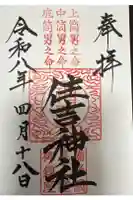 奉拝
上筒男之命
中筒男之命
底筒男之命
住吉神社
令和八年四月十八日